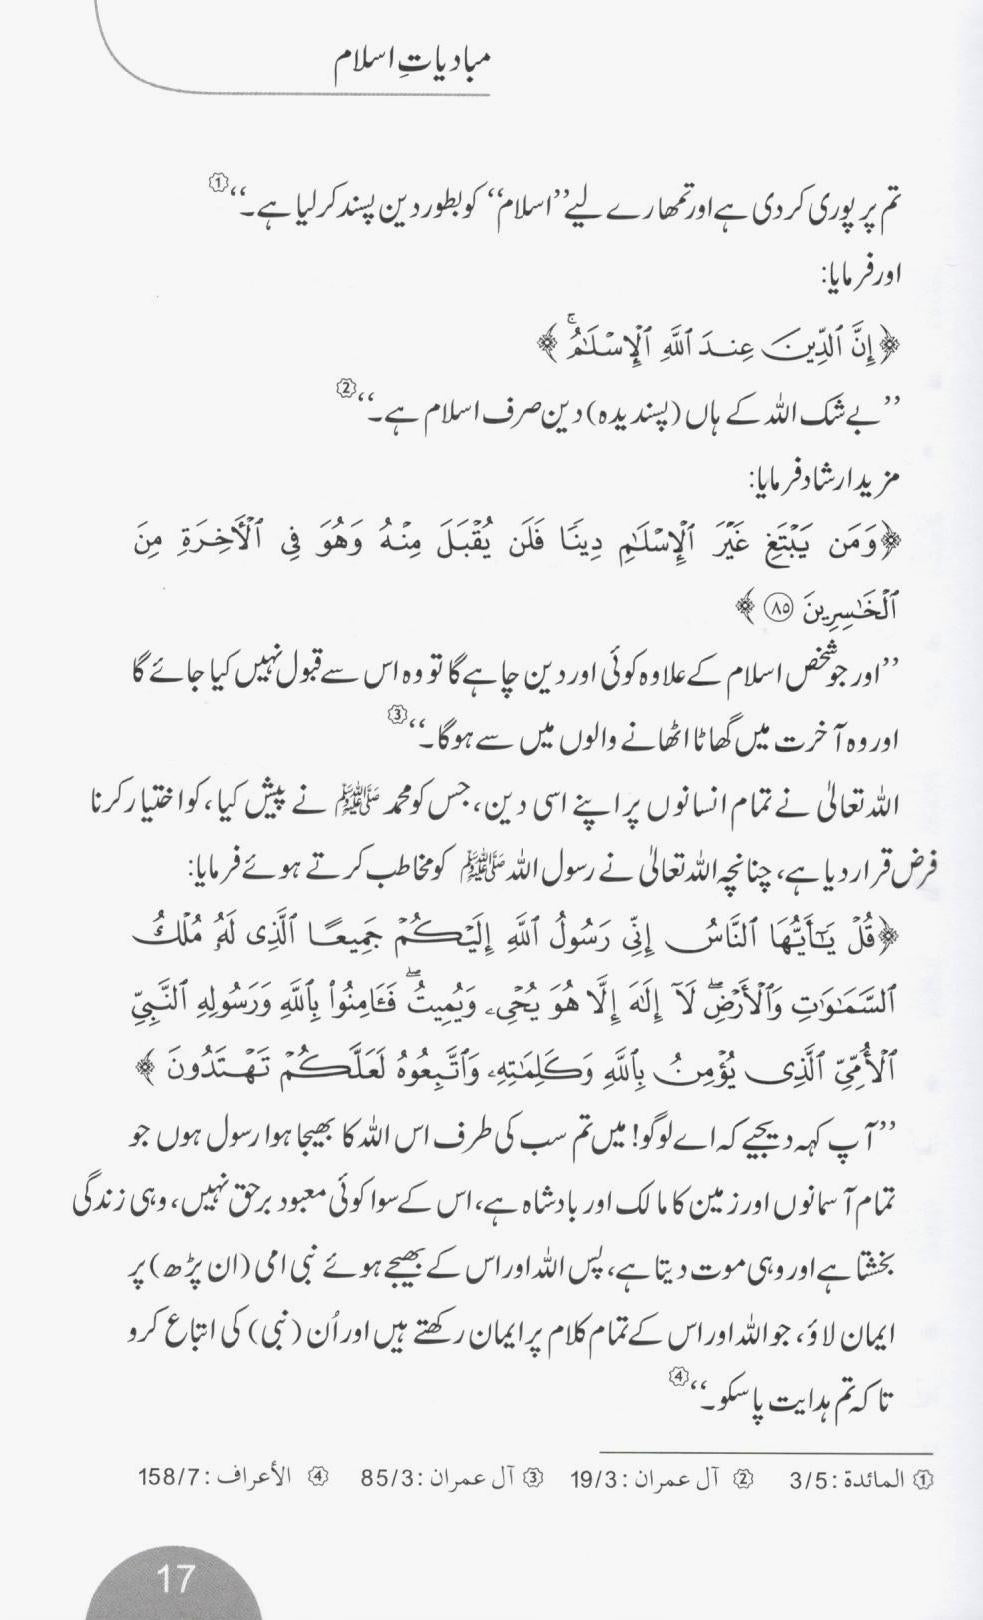 مبادیاتِ اسلام
تم پر پوری کر دی ہے اور تمھارے لیے ’’اسلام‘‘ کو بطور دین پسند کر لیا ہے۔‘‘①
اور فرمایا:
﴿إِنَّ ٱلدِّينَ عِندَ ٱللَّهِ ٱلۡإِسۡلَٰمُۗ﴾
’’بے شک اللہ کے ہاں (پسندیدہ) دین صرف اسلام ہے۔‘‘②
مزید ارشاد فرمایا:
﴿وَمَن يَبۡتَغِ غَيۡرَ ٱلۡإِسۡلَٰمِ دِينٗا فَلَن يُقۡبَلَ مِنۡهُ وَهُوَ فِي ٱلۡأٓخِرَةِ مِنَ
ٱلۡخَٰسِرِينَ ٨٥﴾
’’اور جو شخص اسلام کے علاوہ کوئی اور دین چاہے گا تو وہ اس سے قبول نہیں کیا جائے گا
اور وہ آخرت میں گھاٹا اٹھانے والوں میں سے ہوگا۔‘‘③
اللہ تعالیٰ نے تمام انسانوں پر اپنے اسی دین، جس کو محمد ﷺ نے پیش کیا، کو اختیار کرنا
فرض قرار دیا ہے، چنانچہ اللہ تعالیٰ نے رسول اللہ ﷺ کو مخاطب کرتے ہوئے فرمایا:
﴿قُلۡ يَٰٓأَيُّهَا ٱلنَّاسُ إِنِّي رَسُولُ ٱللَّهِ إِلَيۡكُمۡ جَمِيعًا ٱلَّذِي لَهُۥ مُلۡكُ
ٱلسَّمَٰوَٰتِ وَٱلۡأَرۡضِۖ لَآ إِلَٰهَ إِلَّا هُوَ يُحۡيِۦ وَيُمِيتُۖ فَـَٔامِنُواْ بِٱللَّهِ وَرَسُولِهِ ٱلنَّبِيِّ
ٱلۡأُمِّيِّ ٱلَّذِي يُؤۡمِنُ بِٱللَّهِ وَكَلِمَٰتِهِۦ وَٱتَّبِعُوهُ لَعَلَّكُمۡ تَهۡتَدُونَ﴾
’’آپ کہہ دیجیے کہ اے لوگو! میں تم سب کی طرف اس اللہ کا بھیجا ہوا رسول ہوں جو
تمام آسمانوں اور زمین کا مالک اور بادشاہ ہے، اس کے سوا کوئی معبود برحق نہیں، وہی زندگی
بخشتا ہے اور وہی موت دیتا ہے، پس اللہ اور اس کے بھیجے ہوئے نبی امی (ان پڑھ) پر
ایمان لاؤ، جو اللہ اور اس کے تمام کلام پر ایمان رکھتے ہیں اور اُن (نبی) کی اتباع کرو
تاکہ تم ہدایت پا سکو۔‘‘④
① المائدة: 3/5 ② آل عمران: 19/3 ③ آل عمران: 85/3 ④ الأعراف: 158/7
17